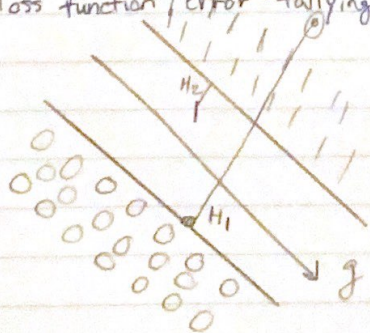 loss function / error tallying
H₂
H₁
g